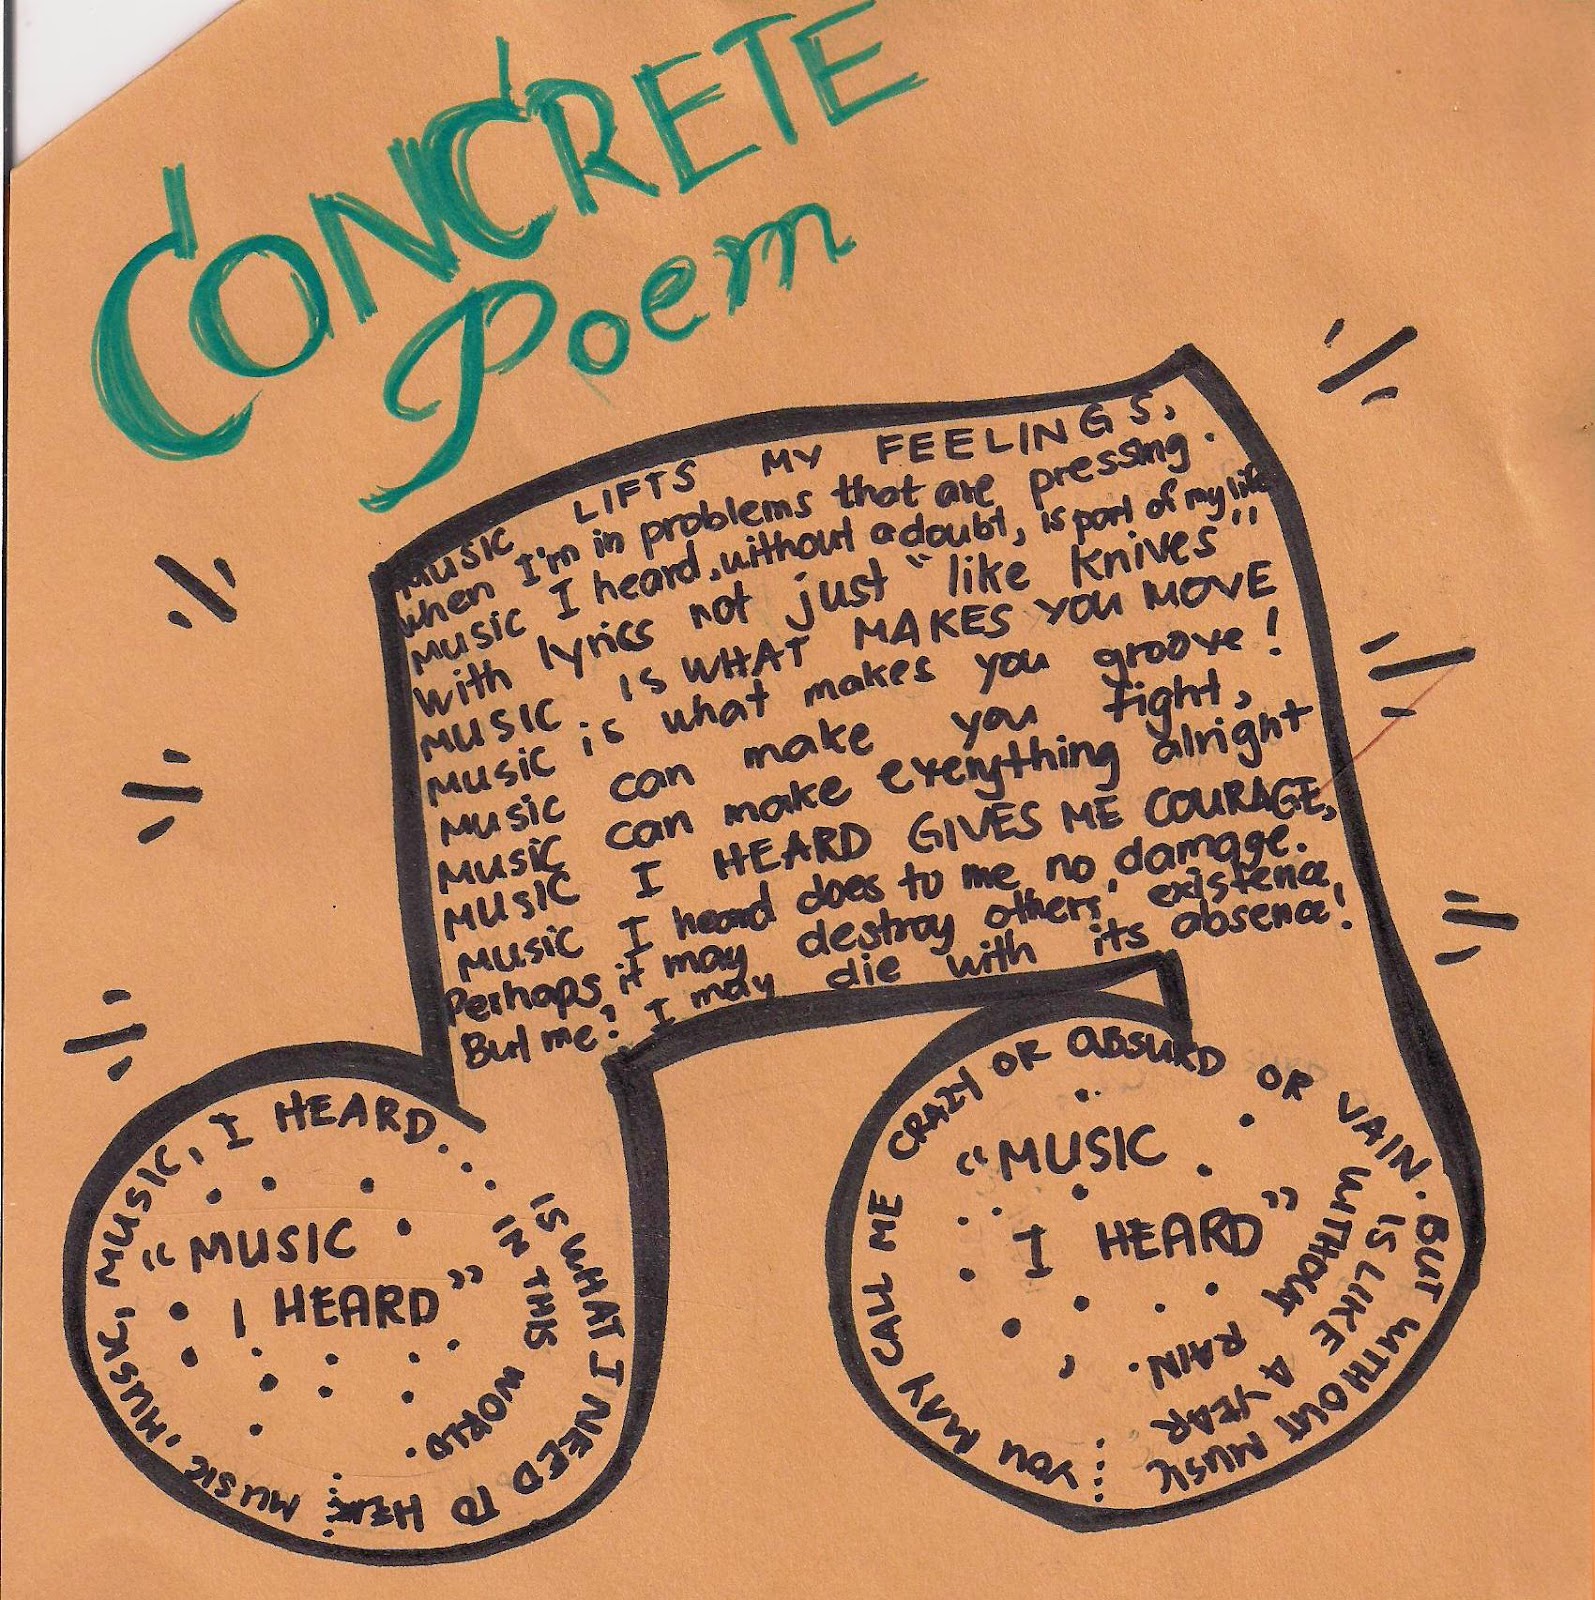 CONCRETE
Poem
MUSIC LIFTS MY FEELINGS,
when I'm in problems that are pressing.
MUSIC I heard, without a doubt, is part of my life
With lyrics not just "like knives"
MUSIC IS WHAT MAKES YOU MOVE
MUSIC is what makes you groove!
MUSIC can make you fight,
MUSIC can make everything alright
MUSIC I HEARD GIVES ME COURAGE,
MUSIC I heard does to me no damage.
Perhaps it may destroy others' existence,
But me? I may die with its absence!
MUSIC, MUSIC, MUSIC, MUSIC, I HEARD...
IS WHAT I NEED TO HEAR
IN THIS WORLD.
"MUSIC
I HEARD"
YOU MAY CALL ME CRAZY OR ABSURD OR VAIN.
BUT WITHOUT MUSIC
IS LIKE A YEAR
WITHOUT RAIN.
"MUSIC
I HEARD"